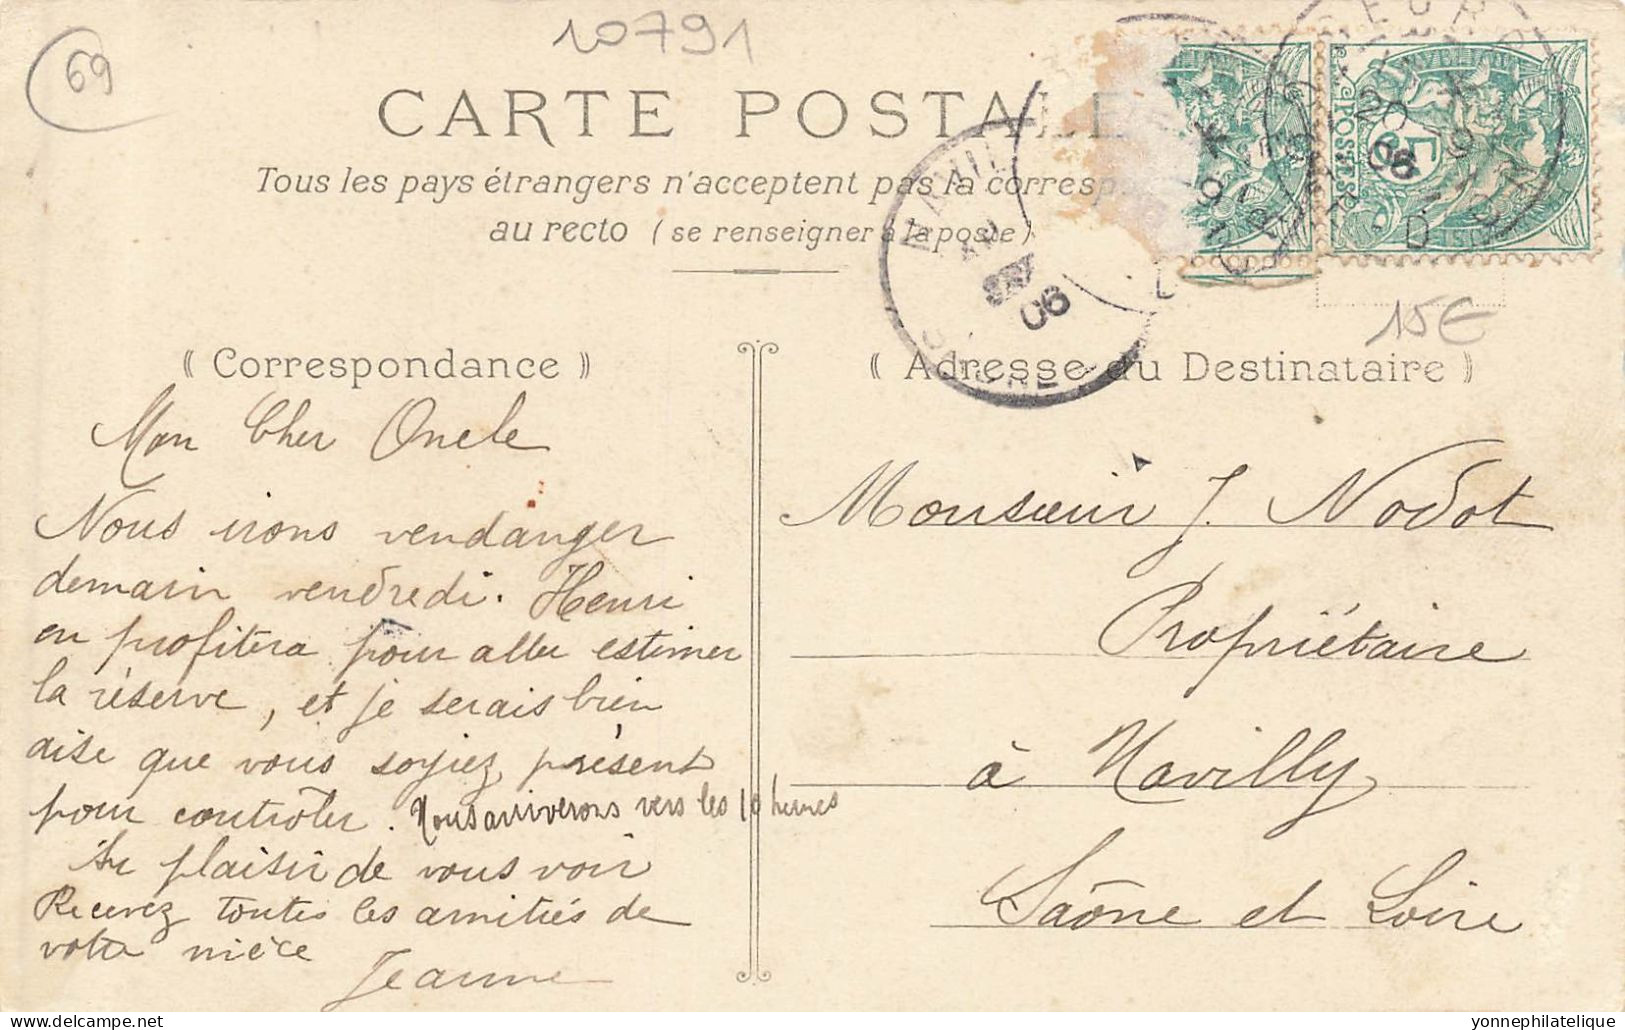 10791
69
CARTE POSTALE
Tous les pays étrangers n'acceptent pas la corresp
au recto (se renseigner à la poste)
POSTES
5
20
9
06
NAVILLY
06
15€
« Correspondance »
« Adresse du Destinataire »
Mon Cher Oncle
Nous irons vendanger
demain vendredi. Henri
en profitera pour aller estimer
la réserve, et je serais bien
aise que vous soyiez présent
pour contrôler. Nous arriverons vers les 10 heures
Au plaisir de vous voir
Recevez toutes les amitiés de
votre nièce
Jeanne
Monsieur J. Nodot
Propriétaire
à Navilly
Saône et Loire
yonnephilatelique